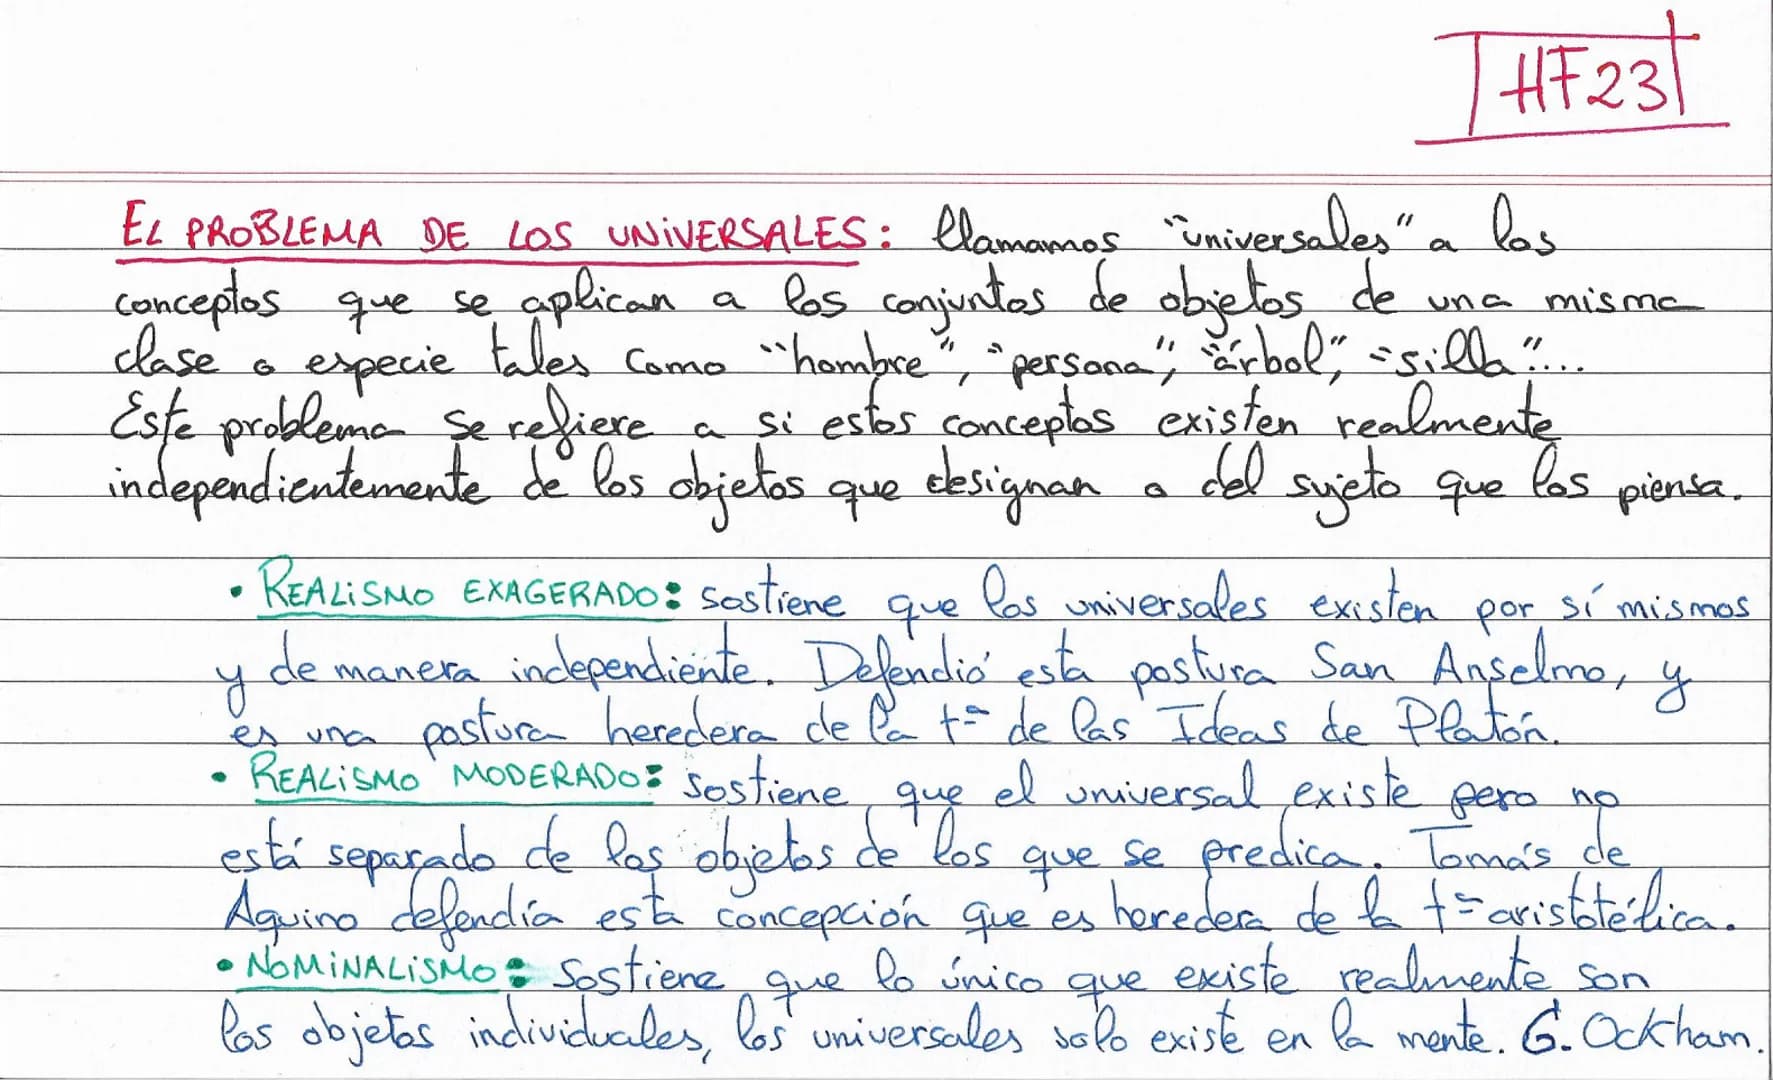 HF23
EL PROBLEMA DE LOS UNIVERSALES: llamamos "universales" a los
conceptos que se aplican a los conjuntos de objetos de una misma
clase o especie tales como "hombre", "persona", "árbol", "silla"...
Este problema se refiere a si estos conceptos existen realmente
independientemente de los objetos que designan o del sujeto que los piensa.
• REALISMO EXAGERADO: sostiene que los universales existen por sí mismos
y de manera independiente. Defendió esta postura San Anselmo, y
es una postura heredera de la tª de las Ideas de Platón.
• REALISMO MODERADO: sostiene que el universal existe pero no
está separado de los objetos de los que se predica. Tomás de
Aquino defendía esta concepción que es heredera de la tª aristotélica.
• NOMINALISMO: Sostiene que lo único que existe realmente son
los objetos individuales, los universales solo existe en la mente. G. Ockham.